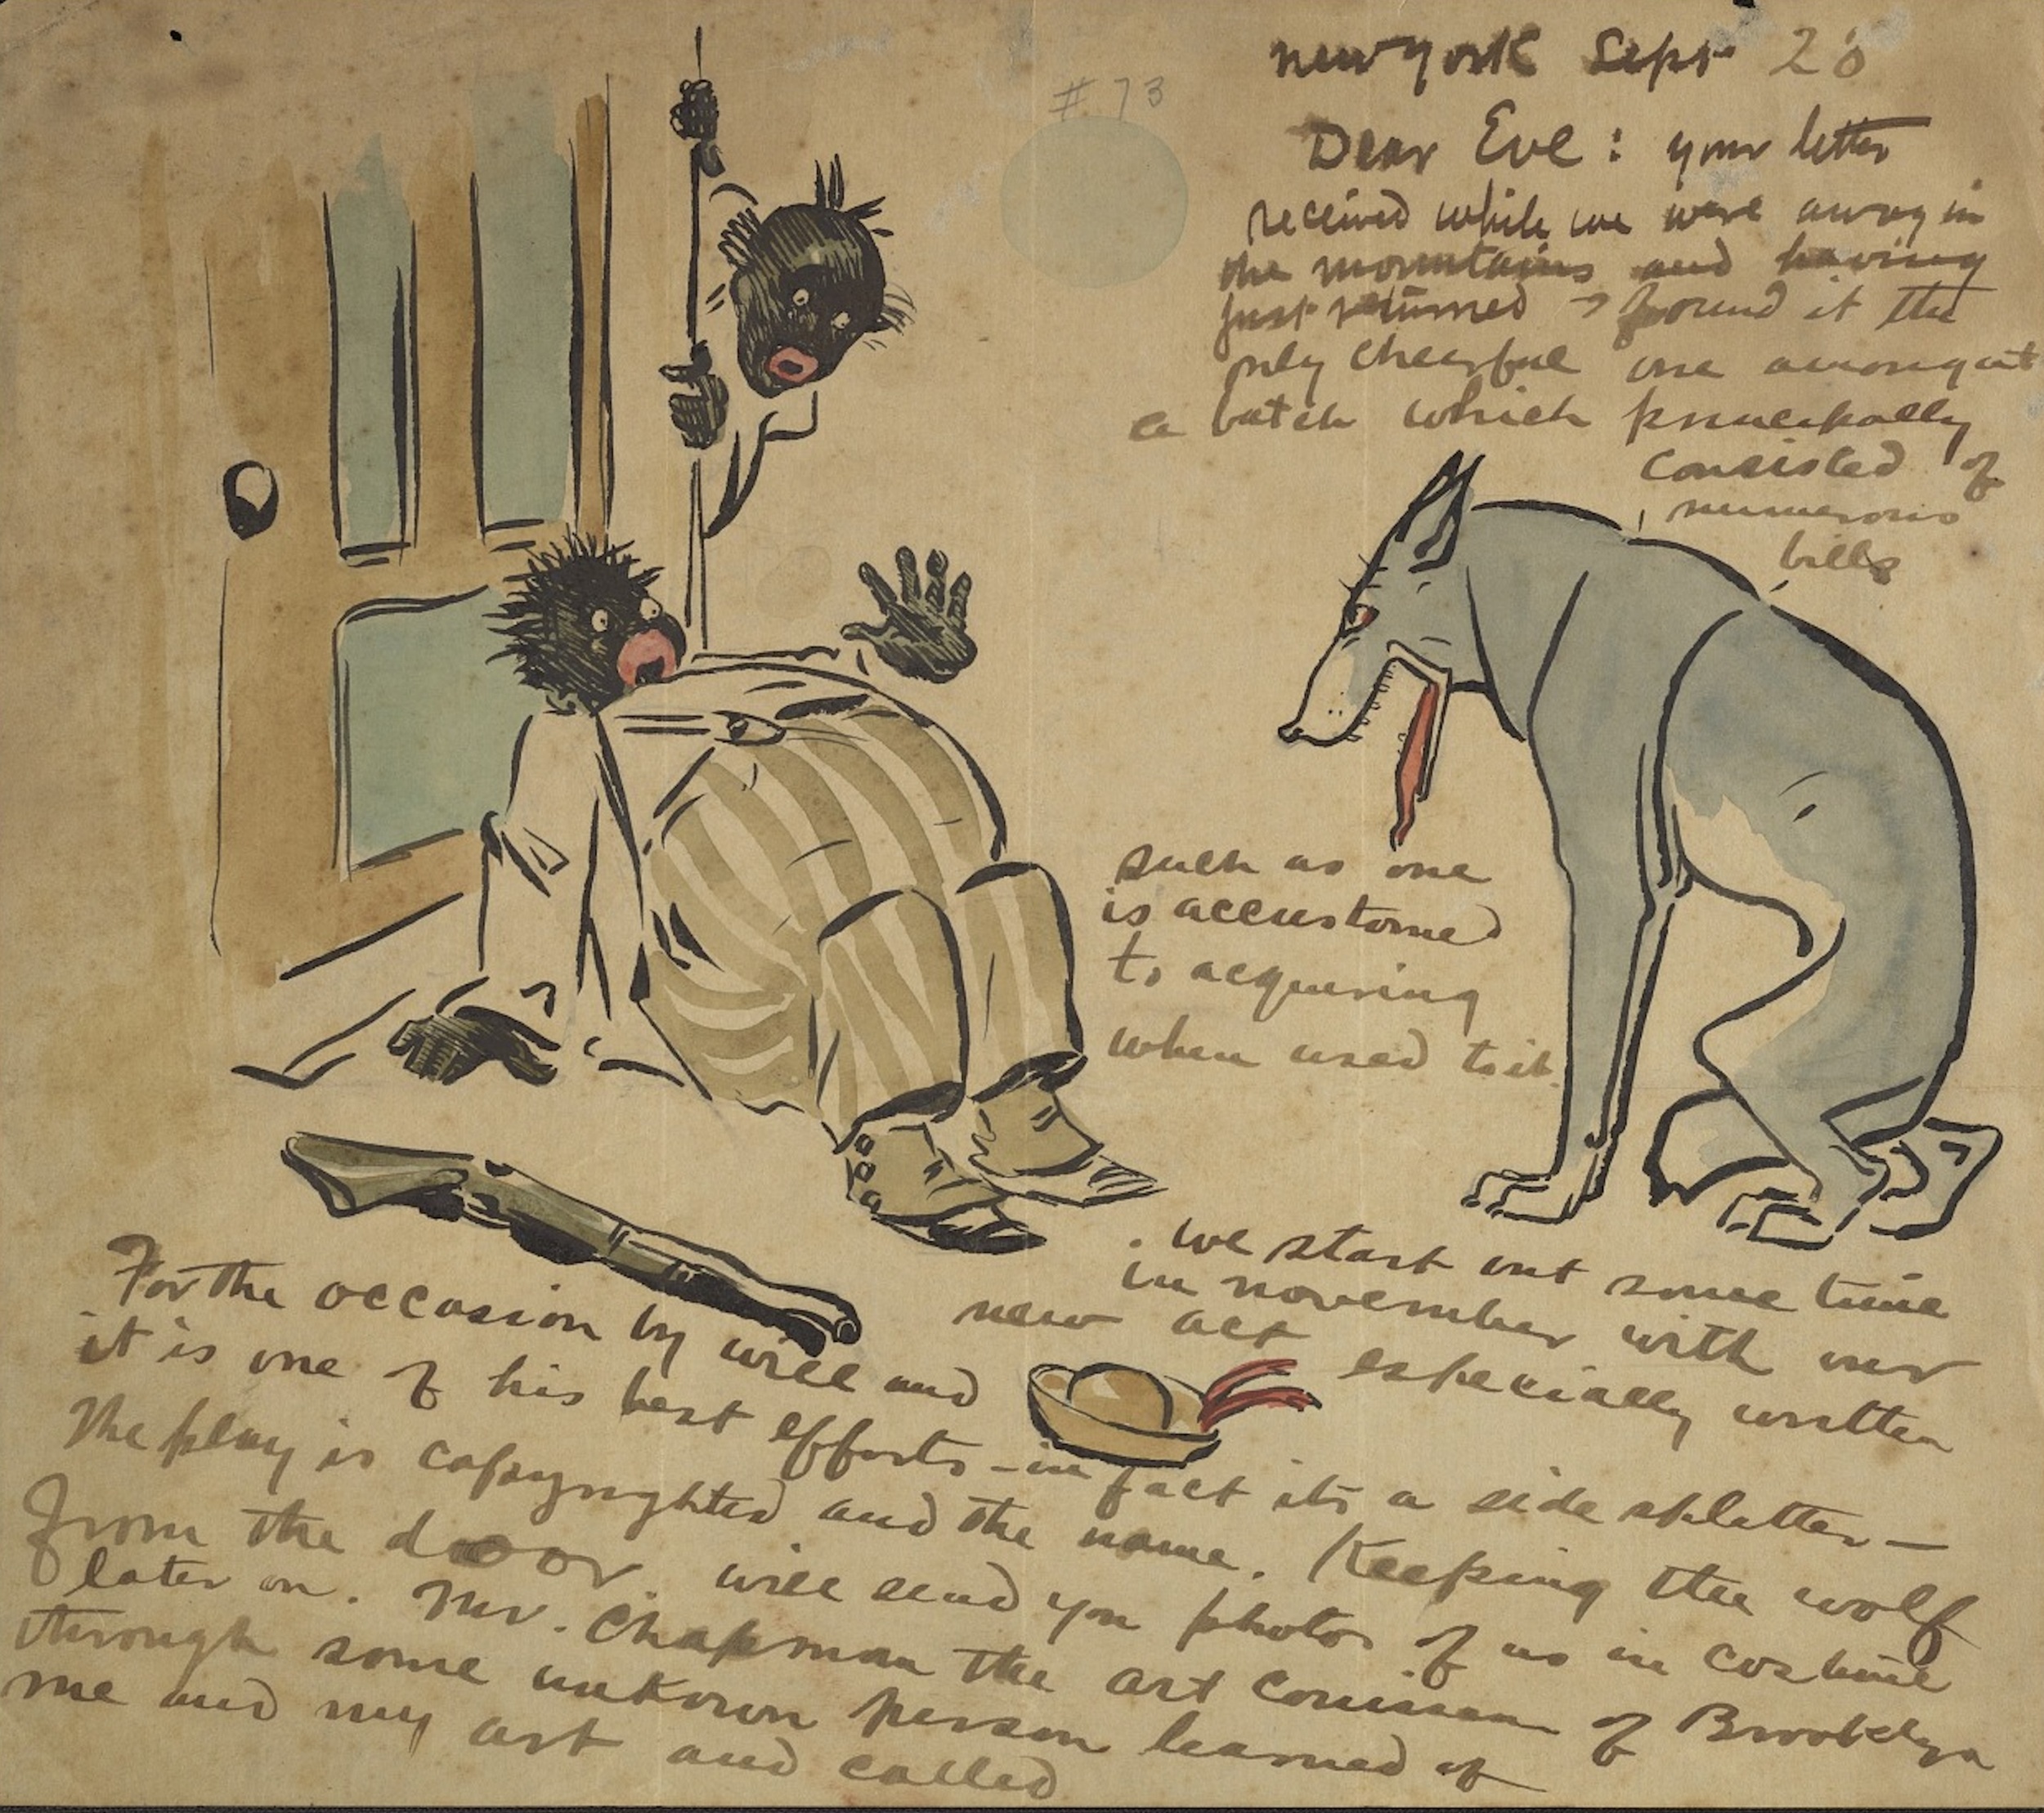 # 73
new york Sept 20
Dear Eve : your letter
received while we were away in
the mountains and having
just returned found it the
only cheerful one amongst
a batch which principally
consisted of
numerous
bills
such as one
is accustomed
to acquiring
when used to it.
. we start out some time
in november with our
new act especially written
For the occasion by will and
it is one of his best efforts - in fact its a side splitter -
The play is copyrighted and the name. Keeping the wolf
From the door. will send you photos of us in costume
later on. Mr. Chapman the art connisseur of Brooklyn
through some unkown person learned of
me and my art and called